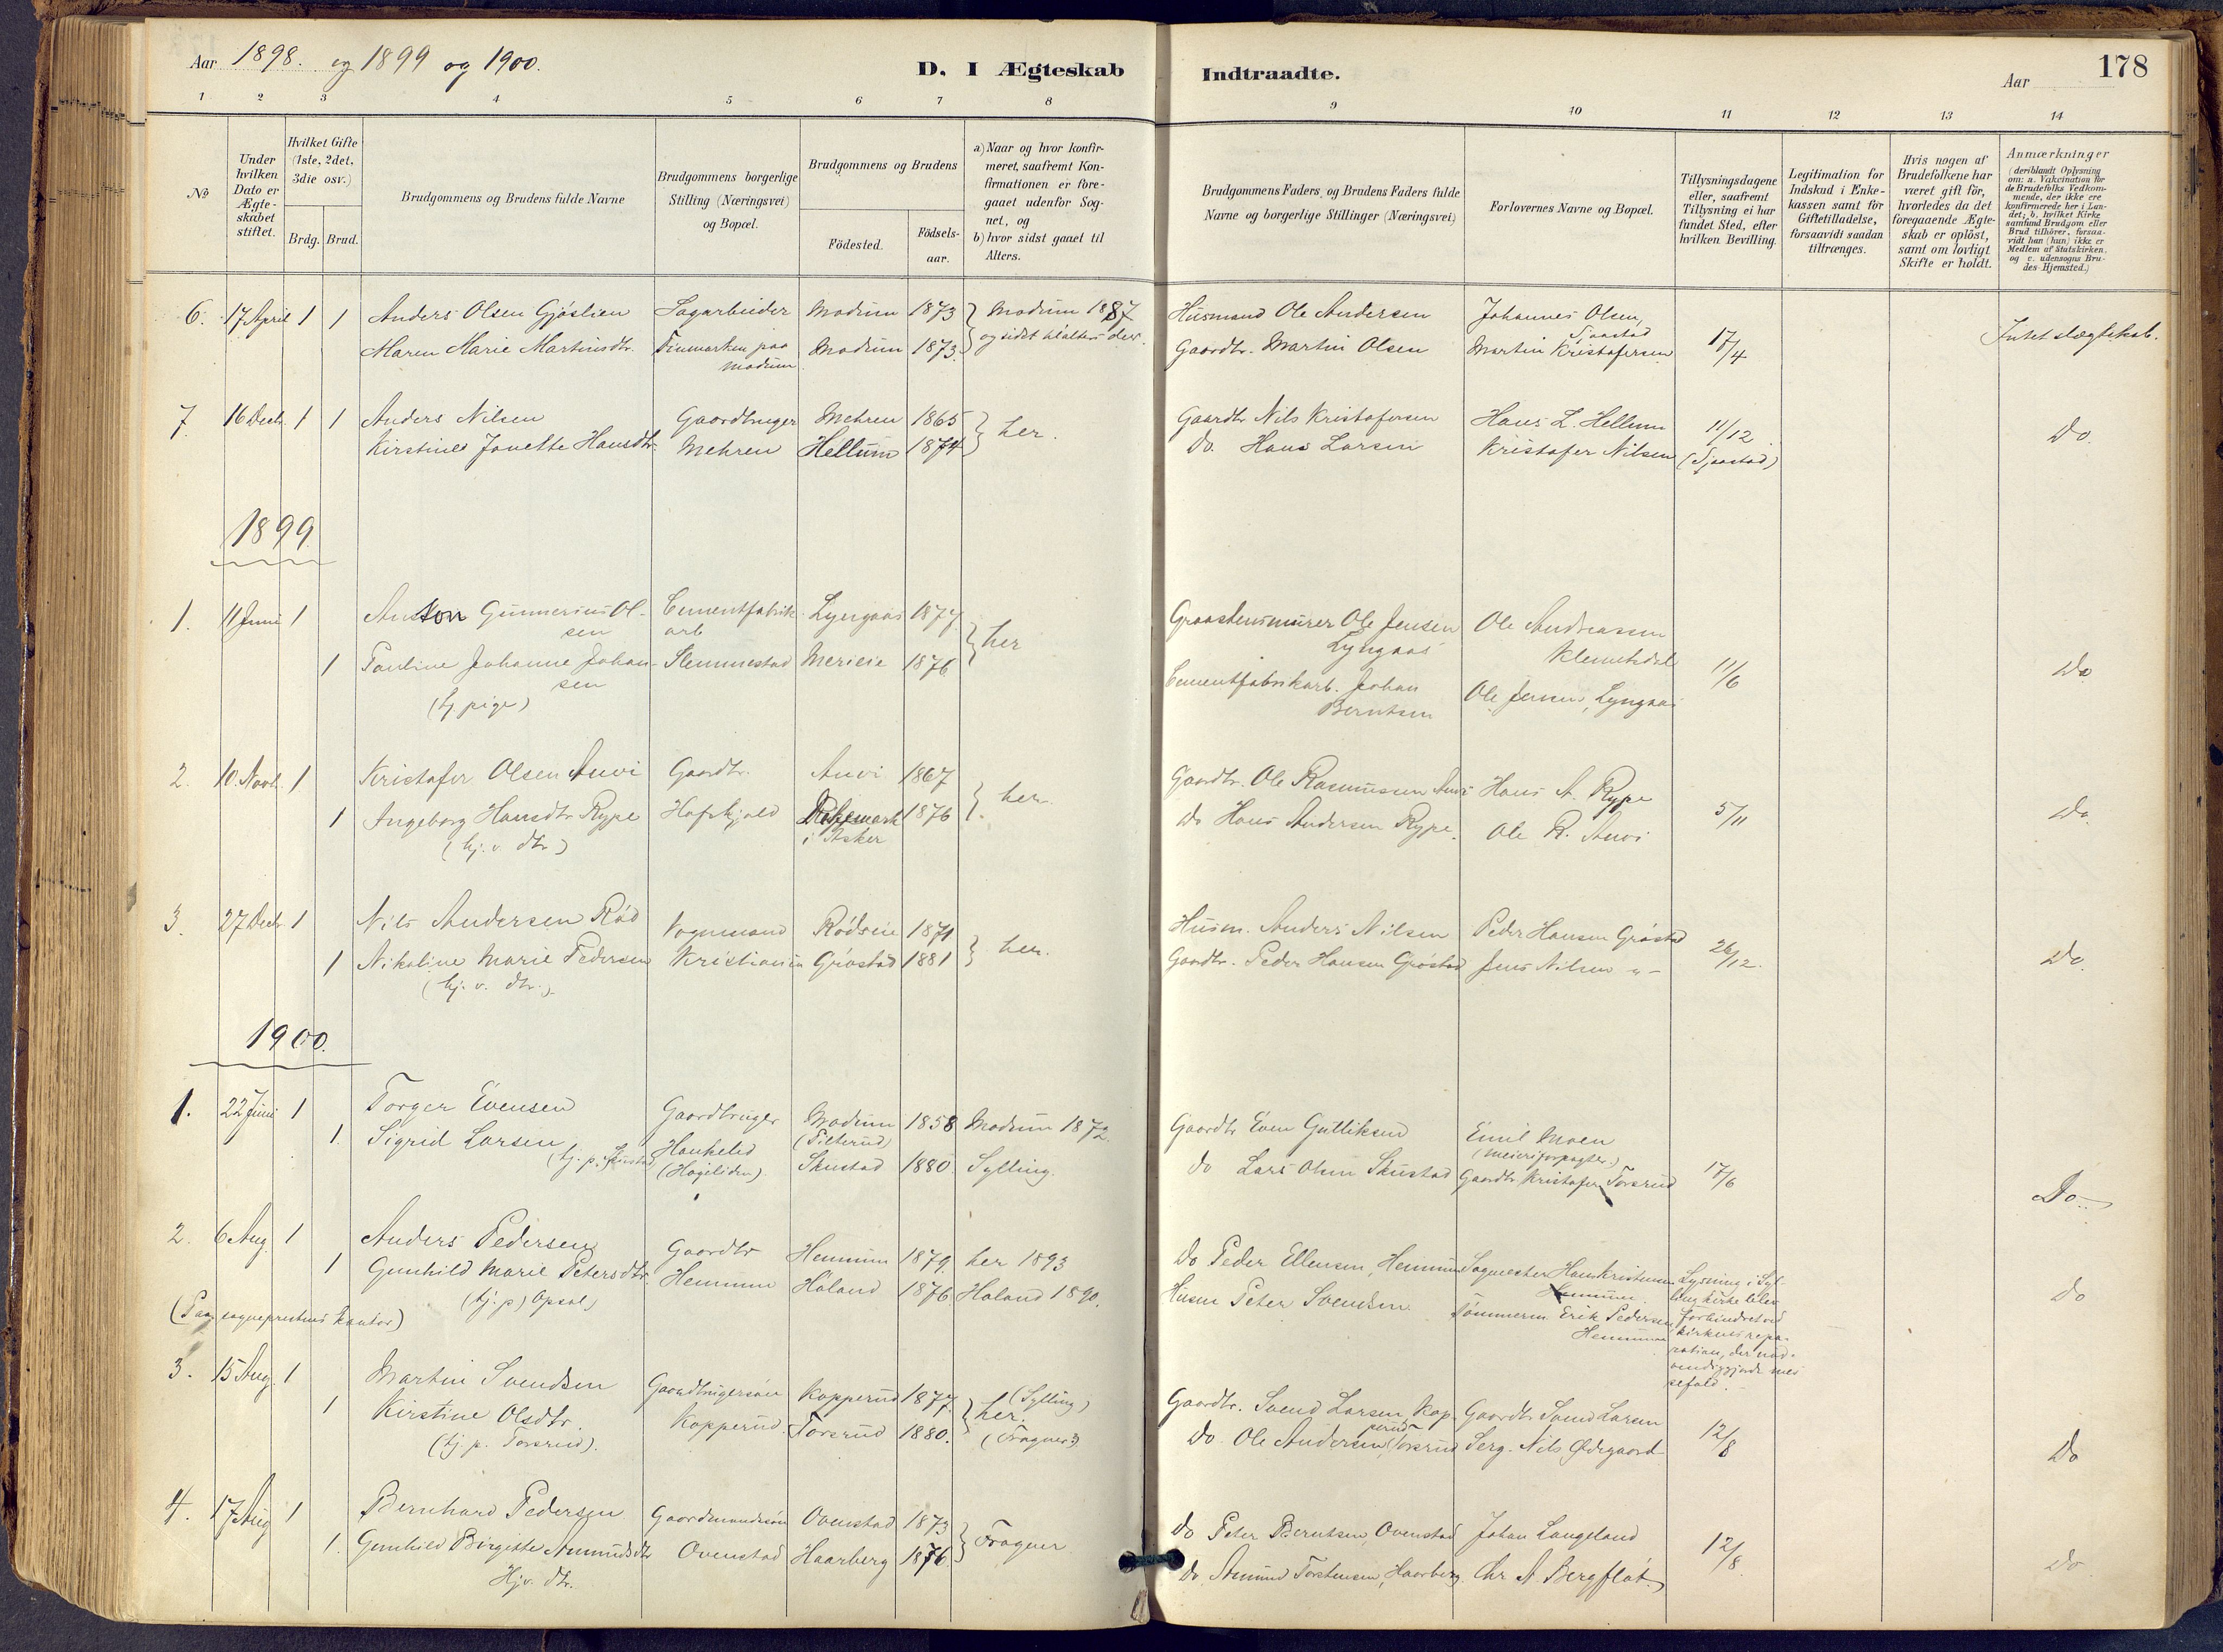 Aar 1898. og 1899 og 1900.
D. I Ægteskab
Indtraadte.
Aar
178
1 2 3 4 5 6 7 8 9 10 11 12 13 14
No
Under hvilken Dato er Ægteskabet stiftet.
Hvilket Gifte (1ste, 2det, 3die osv.)
Brdg. Brud.
Brudgommens og Brudens fulde Navne
Brudgommens borgerlige Stilling (Næringsvei) og Bopæl.
Brudgommens og Brudens
Födested.
Födselsaar.
a) Naar og hvor konfirmeret, saafremt Konfirmationen er foregaaet udenfor Sognet, og
b) hvor sidst gaaet til Alters.
Brudgommens Faders og Brudens Faders fulde Navne og borgerlige Stillinger (Næringsvei)
Forlovernes Navne og Bopæl.
Tillysningsdagene eller, saafremt Tillysning ei har fundet Sted, efter hvilken Bevilling.
Legitimation for Indskud i Enkekassen samt for Giftetilladelse, forsaavidt saadan tiltrænges.
Hvis nogen af Brudefolkene har været gift för, hvorledes da det foregaaende Ægteskab er oplöst, samt om lovligt Skifte er holdt.
Anmærkninger (deriblandt Oplysning om: a. Vakcination for de Brudefolks Vedkommende, der ikke ere konfirmerede her i Landet; b. hvilket Kirkesamfund Brudgom eller Brud tilhörer, forsaavidt han (hun) ikke er Medlem af Statskirken, og c. udensogns Brudes Hjemsted.)
6. 17 April 1 1 Anders Olsen Gjöslien Sagarbeider Modum 1873 Modum 1887 Husmand Ole Andersen Johannes Olsen, Tjaastad
Maren Marie Martinsdtr. Finmarken paa Modum Modum 1873. og sidst til alters der. Gaardbr. Martin Olsen Martin Kristofersen 17/4 Intet slægtskab.
7. 16 Decb. 1 1 Anders Nilsen Gaardbruger Mehren 1865 her. Gaardbr Nils Kristofersen Hans L. Hellum 11/12
Kirstine Janette Hansdtr. Mehren Hellum 1874 Do. Hans Larsen Kristofer Nilsen (Tjaastad) Do.
1899
1. 11 Juni 1 Anton Gunnerius Olsen Cementfabrik arb Lyngaas 1877 her Graastensmurer Ole Jensen Lyngaas Ole Andreassen Klemetsdal
1 Pauline Johanne Johansen Slemmestad 1876 Cementfabrikarb. Johan Berntsen Ole Jensen, Lyngaas 11/6 Do
(tj pige)
2. 10. Novb. 1 Kristofer Olsen Auvi Gaardbr. Auvi 1867 her. Gaardbr. Ole Rasmussen Auvi Hans A. Rype
1 Ingeborg Hansdtr Rype 1876 Do Hans Andersen Rype. Ole R. Auvi 5/11 Do.
(hj. v. dtr) i Asker
3. 27 Decb 1 Nils Andersen Röd Vognmand Rödseie 1871 her. Husm. Anders Nilsen Peder Hansen Gröstad
1 Nikoline Marie Pedersen Kristiania Gröstad 1881 Gaardbr. Peder Hansen Gröstad Jens Nilsen - " - 26/12. Do.
(hj. v. dtr.)
1900.
1. 22 Juni 1 Torger Evensen Gaardbruger Modum 1858 Modum 1872. Gaardbr Even Gulliksen Emil Moen
(Meieriforpagter.)
1. Sigrid Larsen (tj. p. Skustad) Skustad 1880. Sylling. Do Lars Olsen Skustad Gaardbr Kristofer Torsrud 17/6 Do.
2. 6 Aug. 1 Anders Pedersen Gaardbr Hemmum 1879. her 1893 Do Peder Ellensen, Hemmum Sagmester Hans Kristensen
1 Gunhild Marie Petersdtr. Hemmum Haland 1876. Haland 1890. Husm Peter Svendsen Tömmerm. Erik Pedersen Hemmum Do
(tj. p) Opsal)
(Paa sogneprestens kontor)
Lysning i Sylling kirke blev forhindret ved kirkens reparation, der nödvendiggjorde messefald.
3. 15 Aug. 1 Martin Svendsen Gaardbrugersön Kopperud 1877. her. (Sylling) Gaardbr. Svend Larsen Kopperud Gaardbr Svend Larsen
1 Kirstine Olsdtr. Kopperud. Torsrud 1880. (Tragner) Do. Ole Andersen, Torsrud Serg. Nils Ödegaard 12/8 Do
(tj. p. Torsrud).
4. 17 Aug 1 Bernhard Pedersen Gaardmandssön Ovenstad 1873 Tragner Do Peter Berntsen, Ovenstad Johan Langeland
1. Gunhild Birgitte Amundsdtr Ovenstad Haarberg 1876. Do. Amund Torstensen, Haarberg. Chr A. Bergflöt. 12/8. Do
Hjv. dtr.